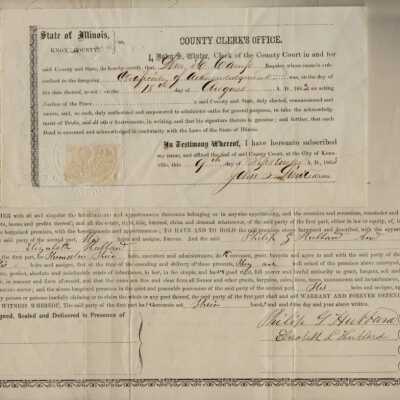 State of Illinois,
KNOX COUNTY. ss.
COUNTY CLERK'S OFFICE.
I, John S. Winter, Clerk of the County Court in and for
said County and State, do hereby certify, that Esquire whose name is sub-
scribed to the foregoing Certificate of Acknowledgment was, on the day of
the date thereof, to wit: on the 18th day of August A. D. 1863 an acting
Justice of the Peace in and for said County and State, duly elected, commissioned and
sworn, and, as such, duly authorized and empowered to administer oaths for general purposes, to take the acknowledg-
ment of Deeds, and all other Instruments, in writing, and that his signature thereto is genuine; and further, that such
Deed is executed and acknowledged in conformity with the Laws of the State of Illinois.
In Testimony Whereof, I have hereunto subscribed
my name, and affixed the seal of said County Court, at the City of Knox-
ville, this 9th day of September A. D. 1863
John S. Winter
with all and singular the hereditaments and appurtenances thereunto belonging or in anywise appertaining, and the reversion and reversions, remainder and
rents, issues and profits thereof; and all the estate, right, title, interest, claim and demand whatsoever, of the said party of the first part, either in law or equity, of, in
bargained premises, with the hereditaments and appurtenances; TO HAVE AND TO HOLD the said premises above bargained and described, with the appurtenances,
said party of the second part, His heirs and assigns, forever. And the said Philip G Hubbard And
Elizabeth Hubbard
the first part, for heirs, executors and administrators, do covenant, grant, bargain and agree to and with the said party of the
heirs and assigns, that at the time of the ensealing and delivery of these presents, they are well seized of the premises above conveyed,
perfect, absolute and indefeasible estate of inheritance, in law, in fee simple, and have good right, full power and lawful authority to grant, bargain, sell and
in manner and form aforesaid, and that the same are free and clear from all former and other grants, bargains, sales, liens, taxes, assessments and incumbrances
and the above bargained premises in the quiet and peaceable possession of the said party of the second part His heirs and assigns, against all
person or persons lawfully claiming or to claim the whole or any part thereof, the said party of the first part shall and will WARRANT AND FOREVER DEFEND.
WITNESS WHEREOF, The said party of the first part hereunto set Their hand and seal the day and year first above written.
Signed, Sealed and Delivered in Presence of
Philip G Hubbard
Elizabeth Hubbard